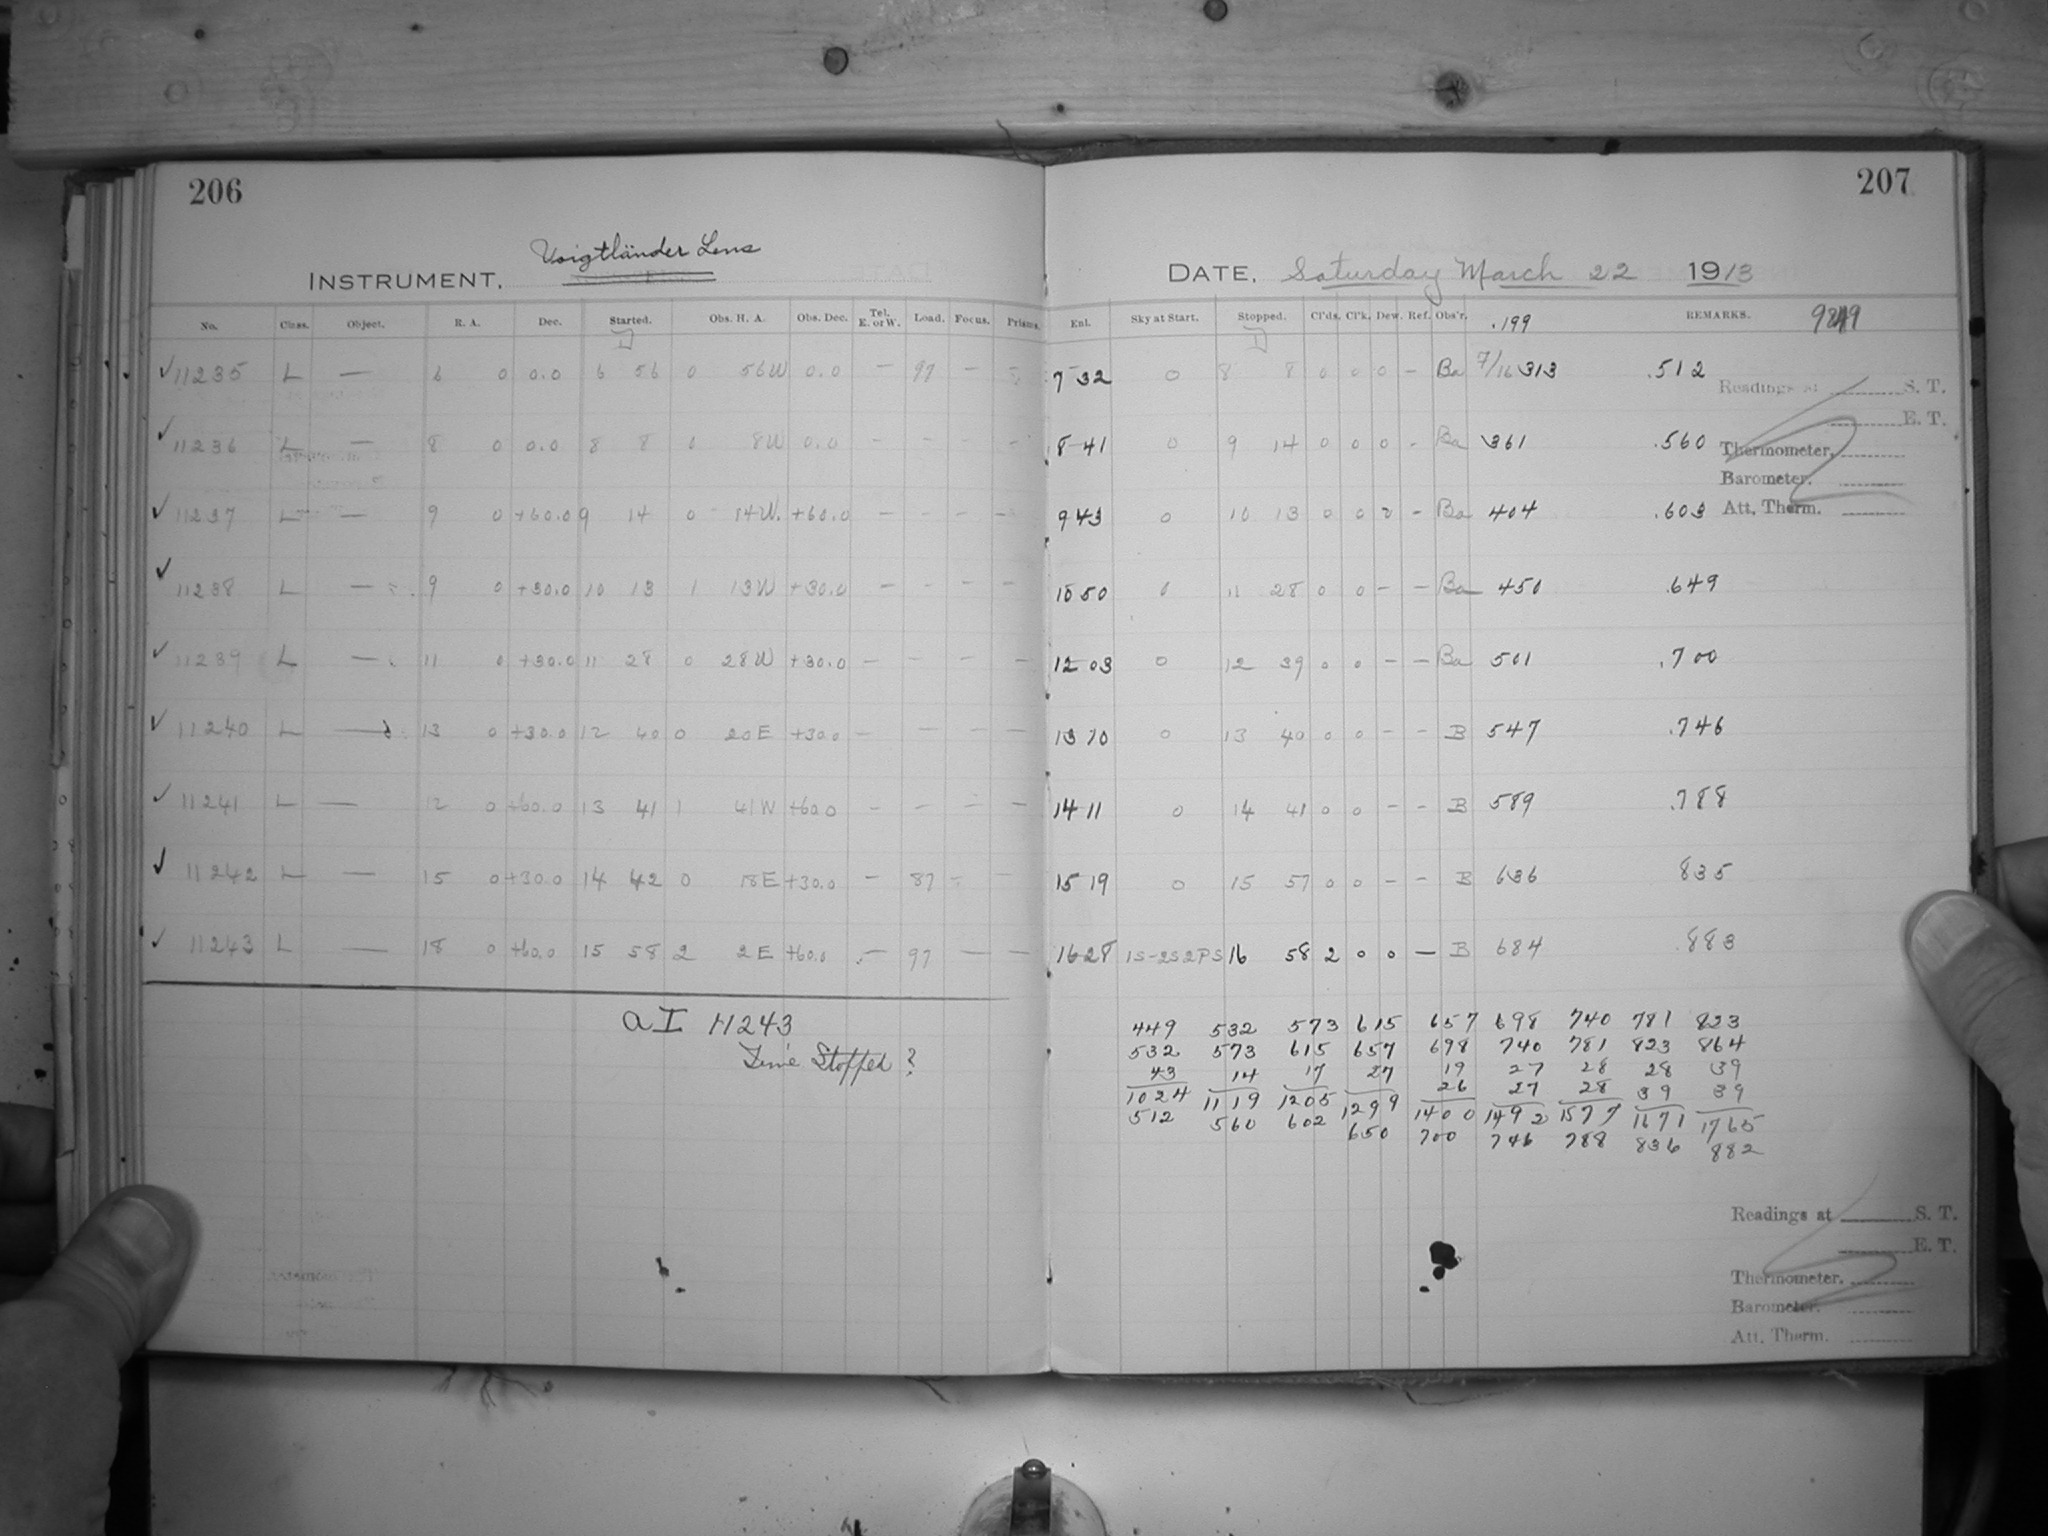 206
207
Voigtländer Lens
INSTRUMENT.
DATE. Saturday March 22 1913
No. Class. Object. R. A. Dec. Started. Obs. H. A. Obs. Dec. Tel. E. or W. Load. Focus. Prisms. Enl. Sky at Start. Stopped. Cl'ds. Cl'k. Dew. Ref. Obs'r. .199 REMARKS.
✓ 11235 L — 6 0 0.0 6 56 0 56W 0.0 — 97 — 7 32 0 8 8 0 0 0 - Ba 7/16 313 .512
Readings at S. T.
E. T.
✓ 11236 L — 8 0 0.0 8 8 0 8W 0.0 - - - - 8 41 0 9 14 0 0 0 - Ba 361 .560
Thermometer.
Barometer.
✓ 11237 L — 9 0 +60.0 9 14 0 14W. +60.0 - - - - 9 43 0 10 13 0 0 2 - Ba 404 .603
Att. Therm.
✓ 11238 L — 9 0 +30.0 10 13 1 13W +30.0 - - - - 10 50 0 11 28 0 0 - - Ba 450 .649
✓ 11239 L — 11 0 +30.0 11 28 0 28W +30.0 - - - - 12 03 0 12 39 0 0 - - Ba 501 .700
✓ 11240 L — 13 0 +30.0 12 40 0 20E +30.0 - - - - 13 10 0 13 40 0 0 - - B 547 .746
✓ 11241 L — 12 0 +60.0 13 41 1 41W +60.0 - - - - 14 11 0 14 41 0 0 - - B 589 .788
✓ 11242 L — 15 0 +30.0 14 42 0 18E +30.0 - 87 - - 15 19 0 15 57 0 0 - - B 636 835
✓ 11243 L — 18 0 +60.0 15 58 2 2E +60.0 - 97 — — 16 28 1S-2S2PS 16 58 2 0 0 — B 684 .883
a I 11243
Time Stopped?
449 532 573 615 657 698 740 781 823
532 573 615 657 698 740 781 823 864
43 14 17 27 19 27 28 28 39
26 27 28 39 39
1024 1119 1205 1299 1400 1492 1577 1671 1765
512 560 602 650 700 746 788 836 882
Readings at S. T.
E. T.
Thermometer.
Barometer.
Att. Therm.